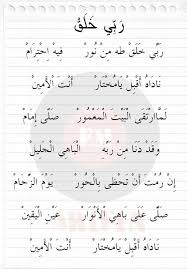 رَبِّي خَلَقْ
رَبِّي خَلَقْ طٰهَ مِنْ نُورْ فِيهِ احْتِرَامْ
نَادَاهُ أَقْبِلْ يَامُخْتَارْ أَنْتَ الْأَمِينْ
لَمَّا ارْتَقَى الْبَيْتَ الْمَعْمُورْ صَلَّى إِمَامْ
وَقَدْ دَنَا مِنْ رَبِّهْ الْبَاهِي الْجَلِيلْ
إِنْ رُمْتَ أَنْ تَحْظَى بِالْحُورْ يَوْمَ الزِّحَامْ
صَلِّى عَلَى بَاهِي الْأَنْوَارْ عَيْنِ الْيَقِينْ
نَادَاهُ أَقْبِلْ يَامُخْتَارْ أَنْتَ الْأَمِينْ